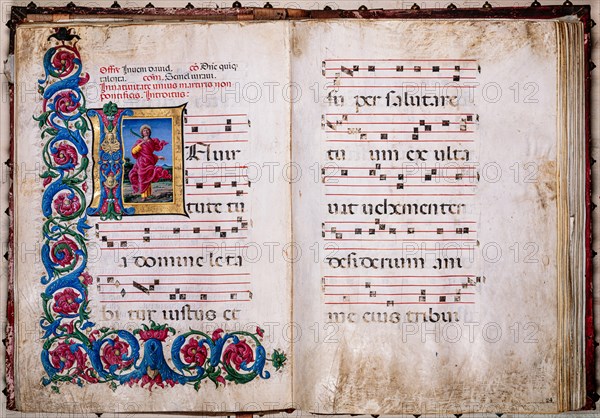 Offe Inveni david. co Dñe quiq
talenta. com. Semel iuravi.
In natiuitate unius martiris non
pontificis. Introitus:
N
uir
tute tu
a domine leta
bi tur iustus et
su per salutare
tu um ex ulta
uit uehementer
desiderium ani
me eius tribui